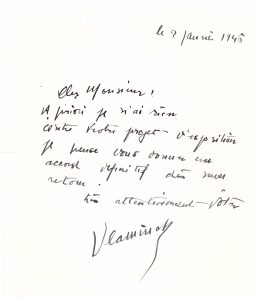 le 9 Janvier 1945
Cher Monsieur!
A priori je n'ai rien
contre votre projet d'exposition
Je pense vous donner un
accord définitif dès mon
retour!
très attentivement vôtre
Vlaminck